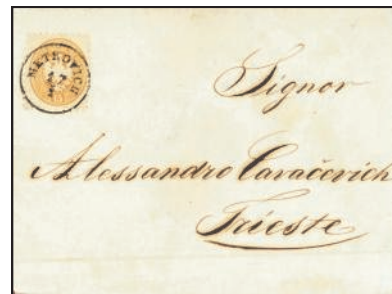 METKOVICH
17
Signor
Alessandro Caračevich
Trieste